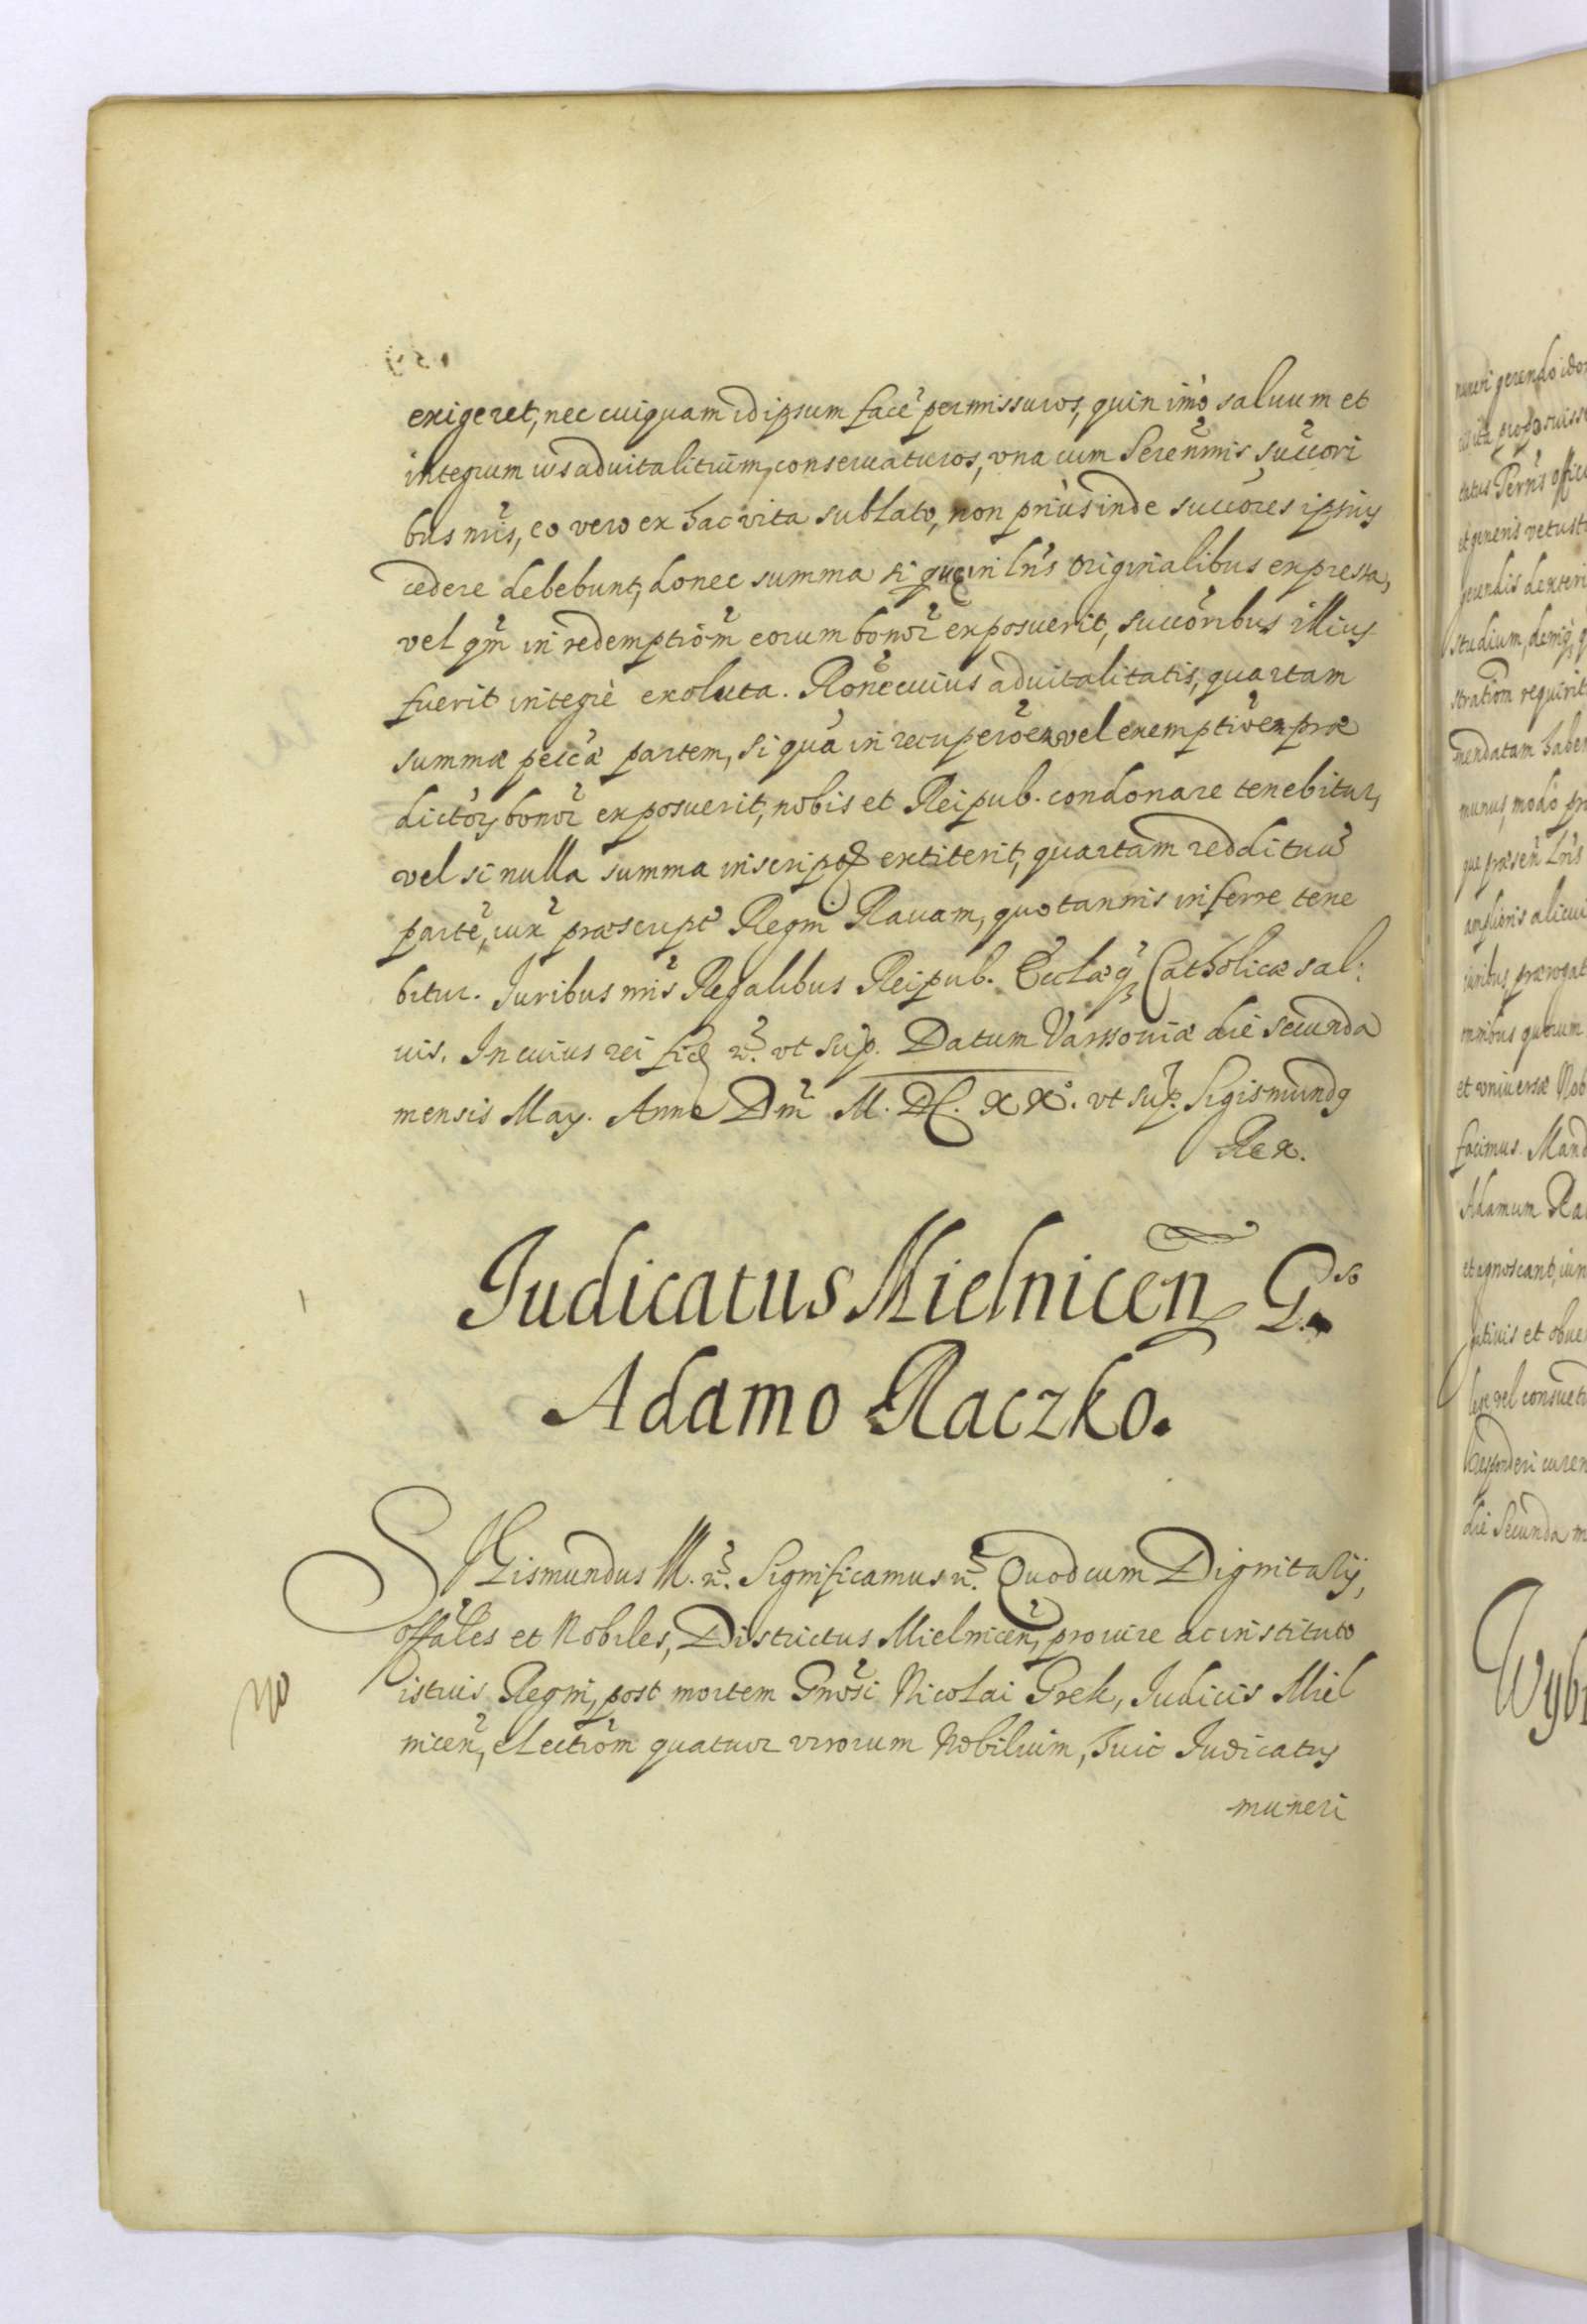 exigeret, nec cuiquam id ipsum facē permissuros, quin imò saluum et
integrum ius aduitalitium, conseruaturos, vna cum Serenm̃is succõri
bus nr̃is, eo vero ex hac vita sublato, non priùs inde succõres ipsius
cedere debebunt, donec summa si quę in lr̃is originalibus expressa,
vel qm̃ in redemptiõm eorum bonor̃ exposuerit, succõribus illius
fuerit integrè exoluta. Rõne cuius aduitalitatis, quartam
summæ pefctæ partem, si quã in recuperõem vel exemptiõem præ
dictor̃ bonor̃ exposuerit, nobis et Reipub. condonare tenebitur,
vel si nulla summa inscripta extiterit, quartam reddituũ
partē, iux̃ præscript̃ Regni Rauam, quotannis inferre tene
bitur. Juribus nr̃is Regalibus Reipub. Ecclæq̃ Catholicæ sal:
uis. In cuius rei fidẽ ẽ. vt sup. Datum Varsouiæ die secunda
mensis May. Anno Dm̃ M. DC. XX°. vt sup. Sigismundus
Rex.
Judicatus Mielnicen̄ G.so
Adamo Raczko.
SIGismundus M. ẽ. Significamus ẽ. Quod cum Dignitarij,
offãles et Nobiles, Districtus Mielnicen̄, pro iure ac instituto
istius Regni, post mortem Gnõsi Nicolai Grek, Judicis Miel
nicen̄, electiõm quatuor virorum Nobilium, huic Judicatus
muneri